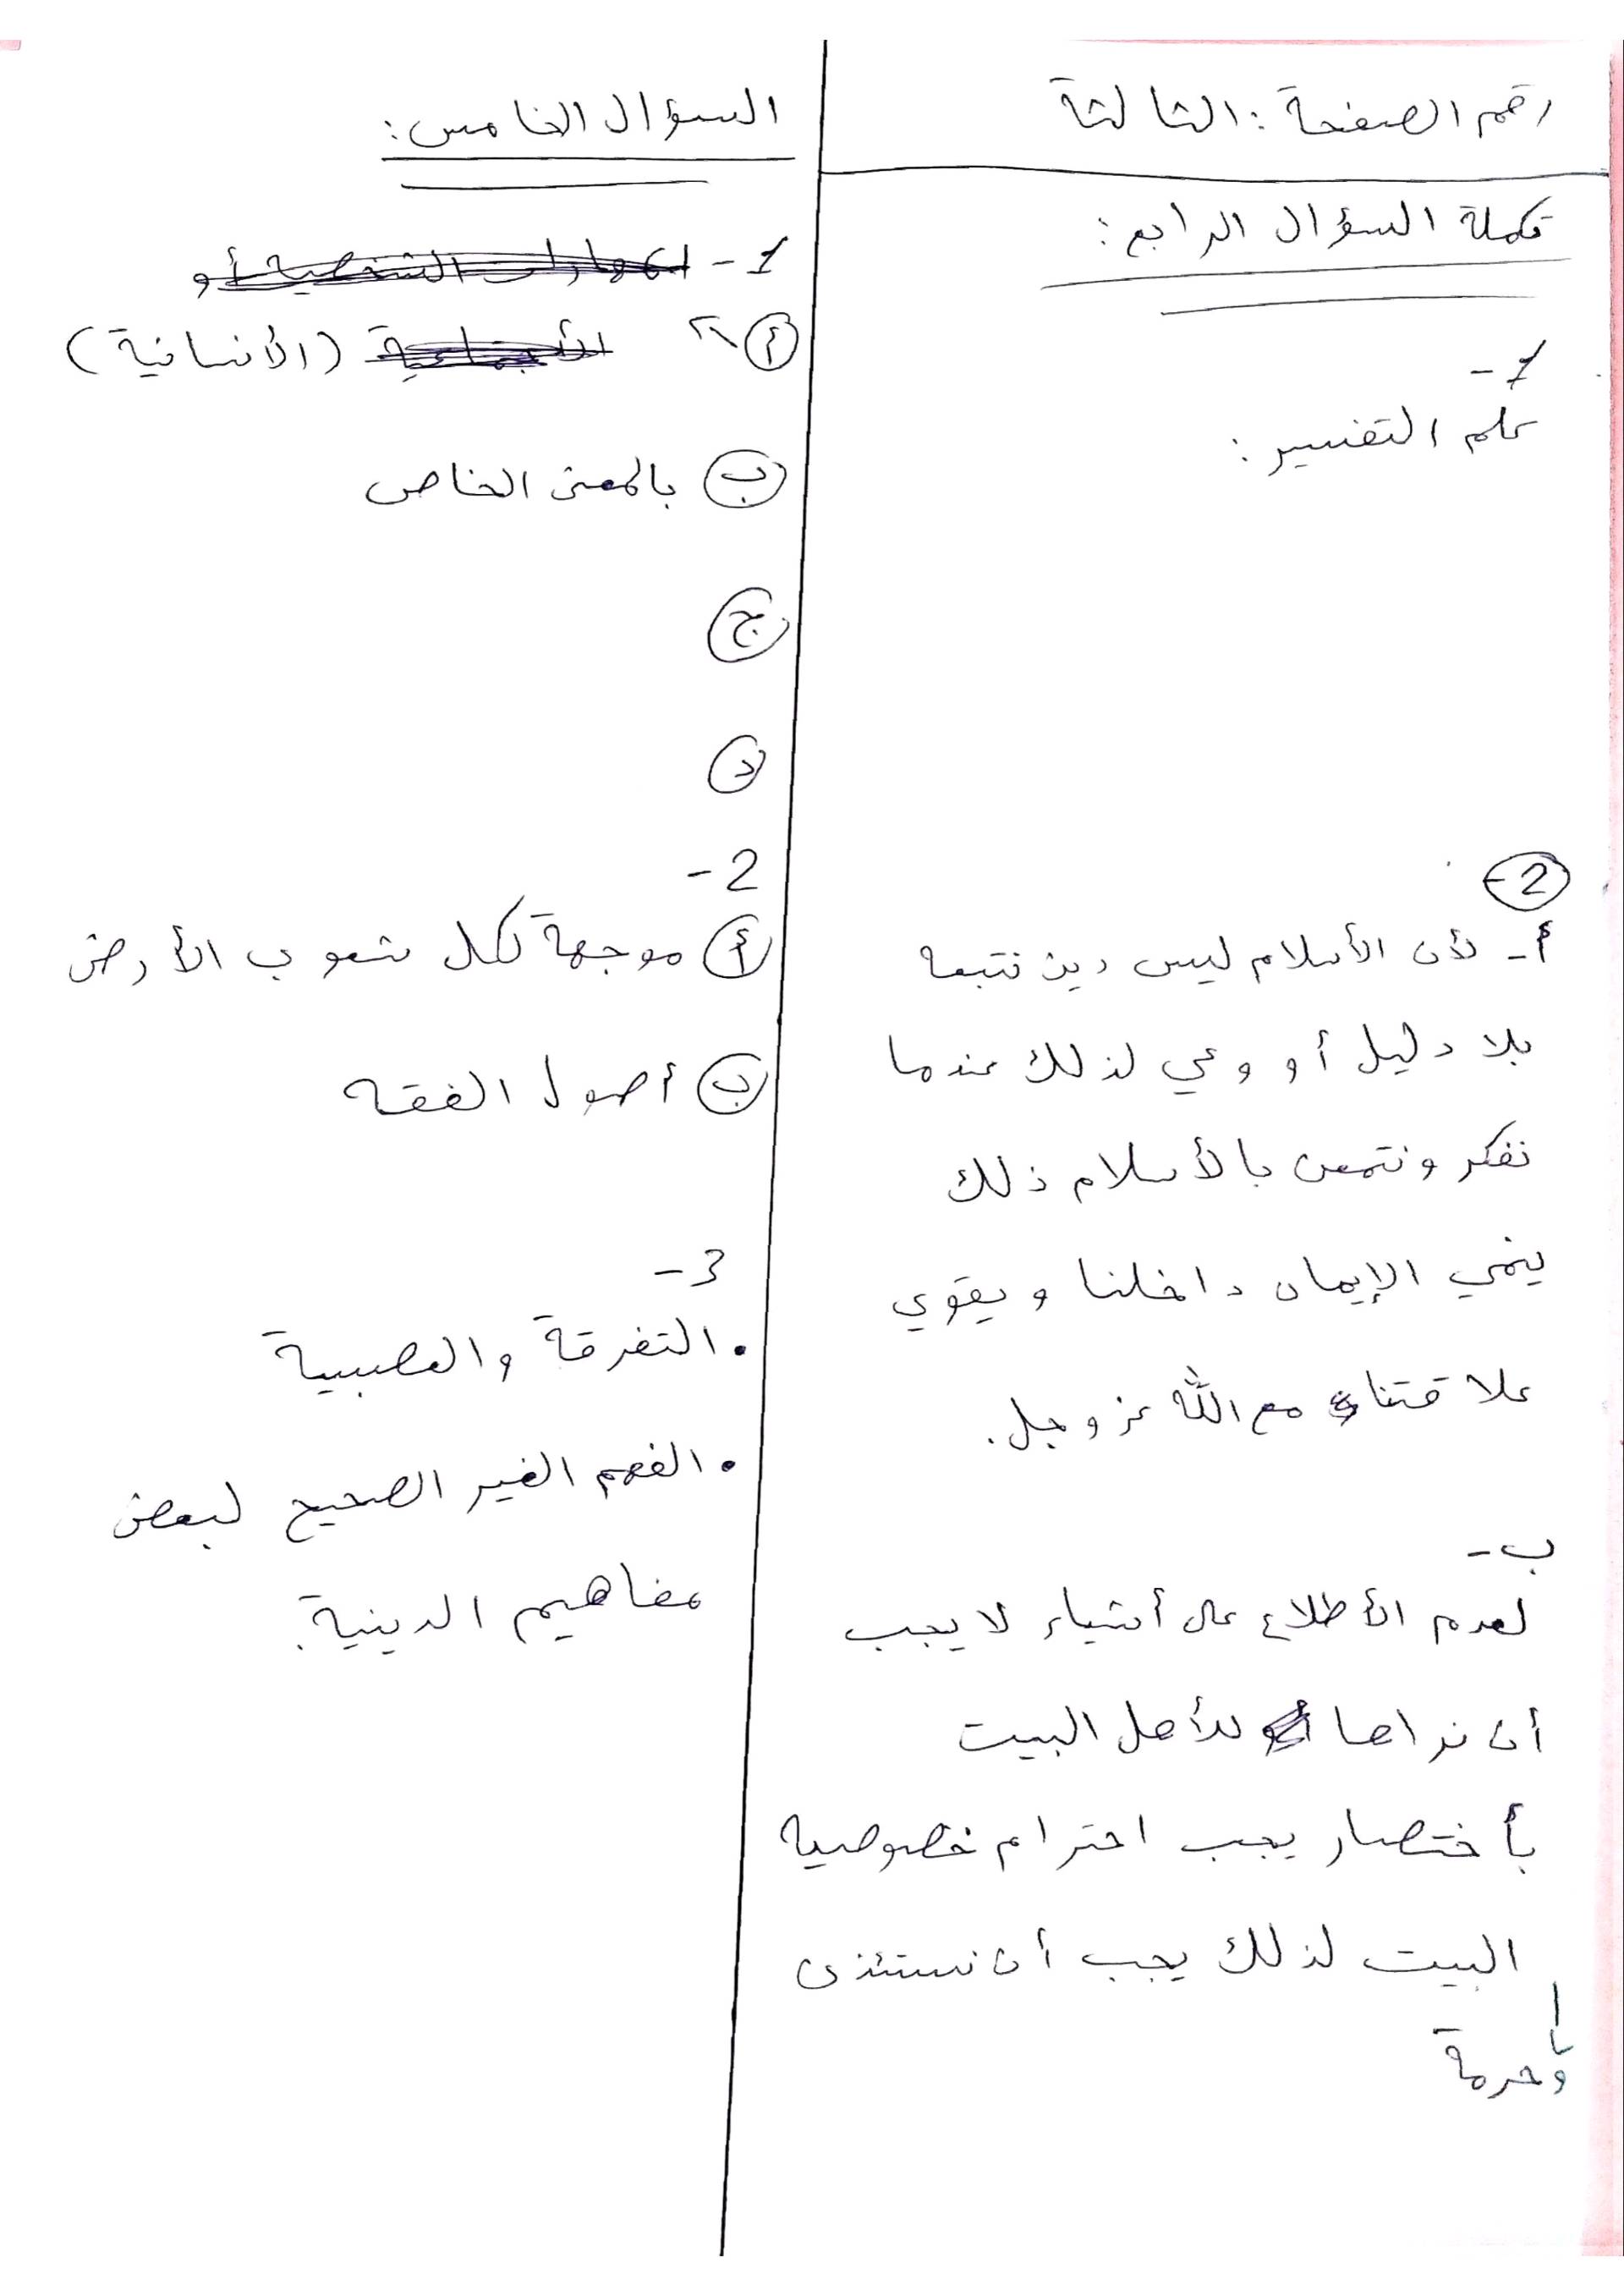 رقم الصفحة: الثالثة
تكملة السؤال الرابع:
1-
علم التفسير:
2-
أ- لأن الأسلام ليس دين نتبعه
بلا دليل أو وعي لذلك عندما
نفكر ونتمعن بالأسلام ذلك
ينمي الإيمان داخلنا ويقوي
علاقتنا مع الله عز وجل.
ب-
لعدم الأطلاع على أشياء لا يجب
أن نراها لأهل البيت
بأختصار يجب احترام خصوصيه
البيت لذلك يجب أن نستئذن
وحرمة
السؤال الخامس:
1- المهارات الشخصية أو
أ الأجتماعية (الأنسانية)
ب بالمعنى الخاص
ج
د
2-
أ موجهة لكل شعوب الأرض
ب أصول الفقه
3-
• التفرقة والعصبية
• الفهم الغير الصحيح لبعض
مفاهيم الدينية.